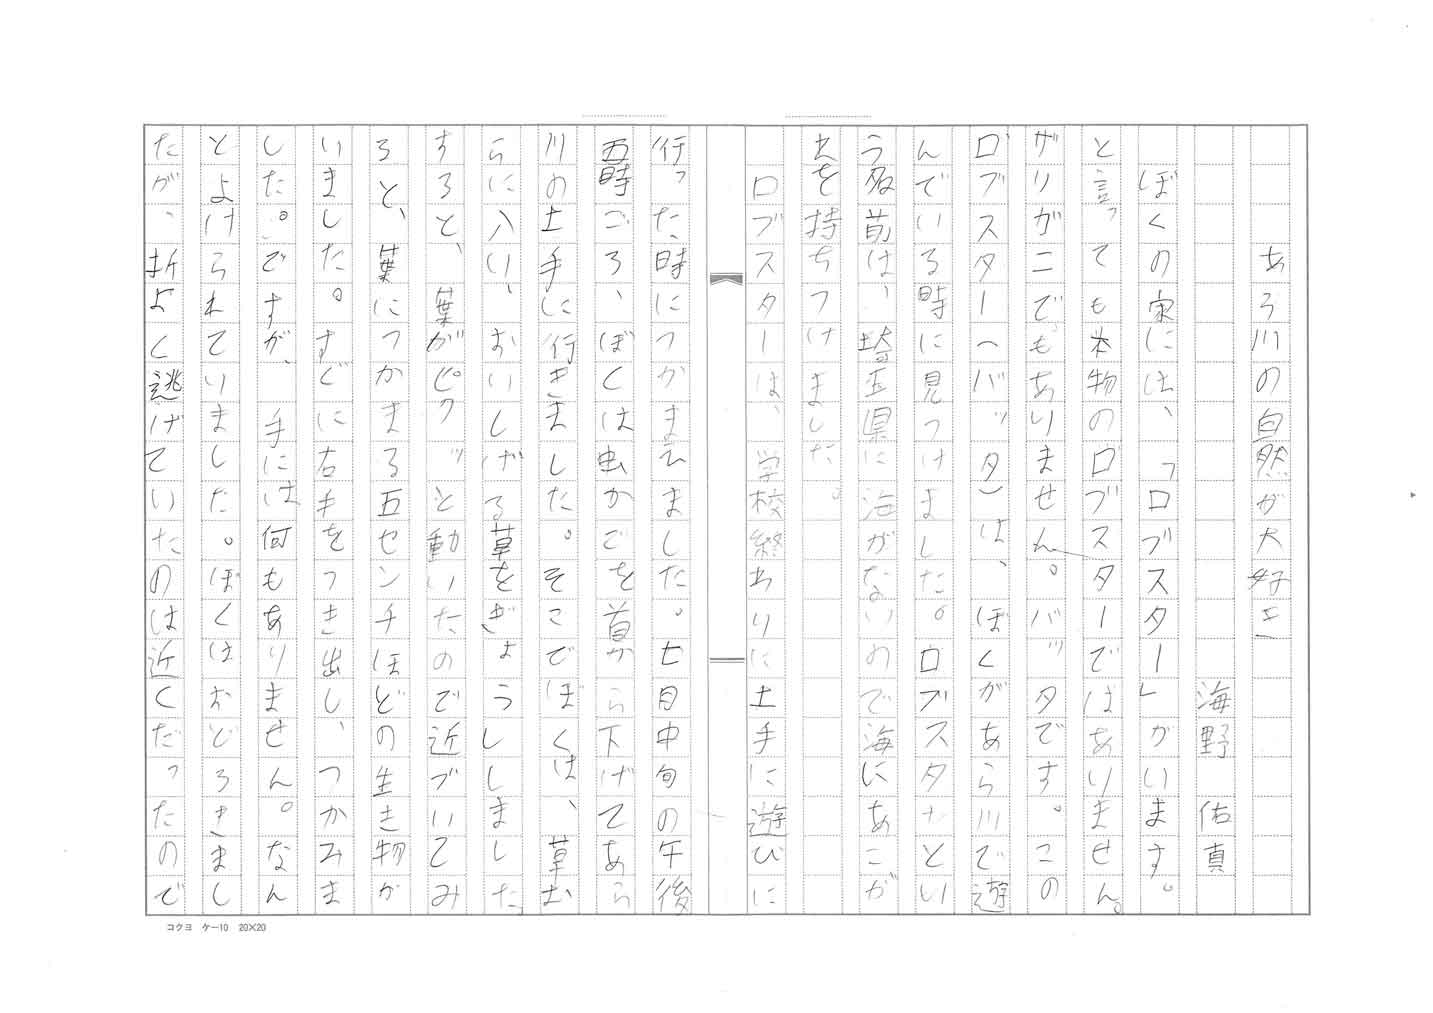 あら川の自然が大好き
海野 佑真
ぼくの家には、「ロブスター」がいます。
と言っても本物のロブスターではありません。
ザリガニでもありません。バッタです。この
ロブスター(バッタ)は、ぼくがあら川で遊
んでいる時に見つけました。ロブスターとい
う名前は、埼玉県に海がないので海にあこが
れを持ちつけました。
ロブスターは、学校終わりに土手に遊びに
行った時につかまえました。七月中旬の午後
五時ごろ、ぼくは虫かごを首から下げてあら
川の土手に行きました。そこでぼくは、草む
らに入り、おいしげる草をぎょうししました
すると、葉がピクッと動いたので近づいてみ
ると、葉につかまる五センチほどの生き物が
いました。すぐに右手をつき出し、つかみま
した。ですが、手には何もありません。なん
とよけられていました。ぼくはおどろきまし
たが、折よく逃げていたのは近くだったので
コクヨ ケー10 20×20